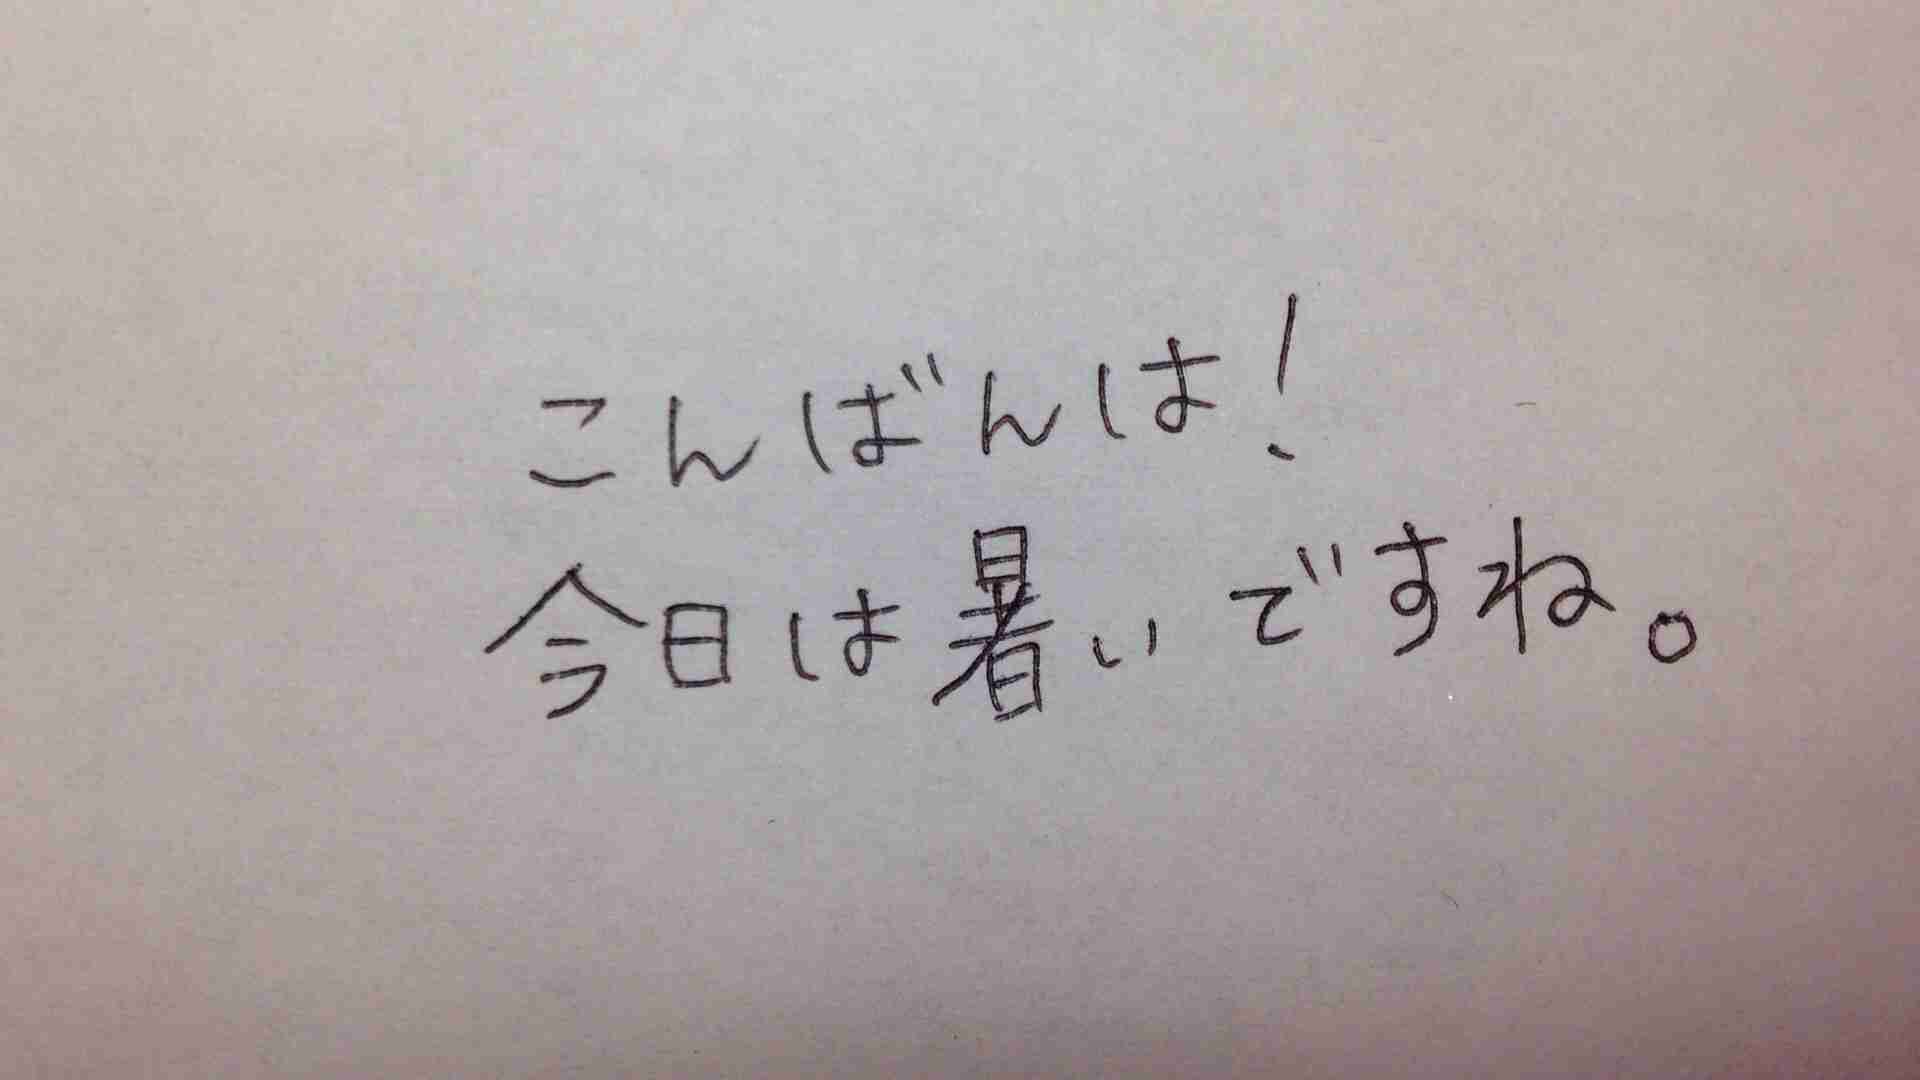 こんばんは!
今日は暑いですね。